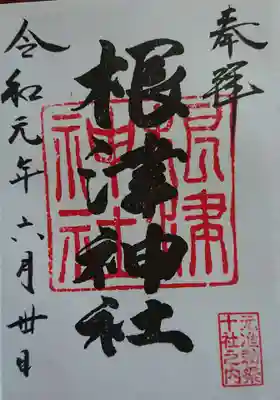 奉拝
根津神社
根津神社
令和元年六月卅日
元准勅祭
十社之内